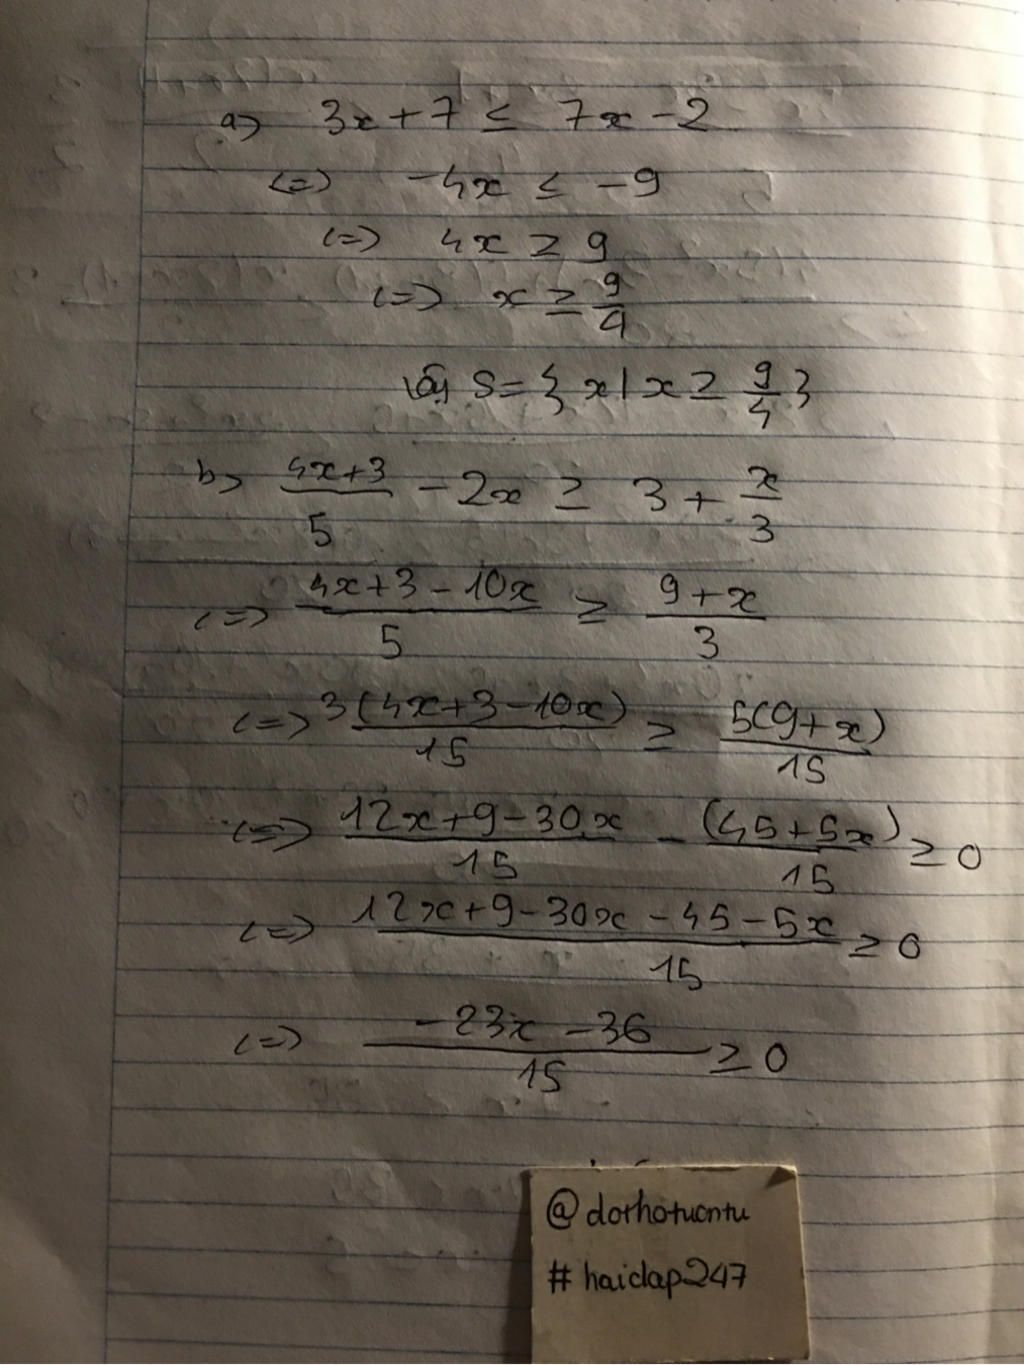 a) 3x + 7 ≤ 7x - 2
<=> -4x ≤ -9
<=> 4x ≥ 9
<=> x ≥ 9/4
Vậy S = { x | x ≥ 9/4 }
b) (4x+3)/5 - 2x ≥ 3 + x/3
<=> (4x+3-10x)/5 ≥ (9+x)/3
<=> 3(4x+3-10x)/15 ≥ 5(9+x)/15
<=> (12x+9-30x)/15 - (45+5x)/15 ≥ 0
<=> (12x+9-30x-45-5x)/15 ≥ 0
<=> (-23x-36)/15 ≥ 0
@dorhotuontu
#haidap247